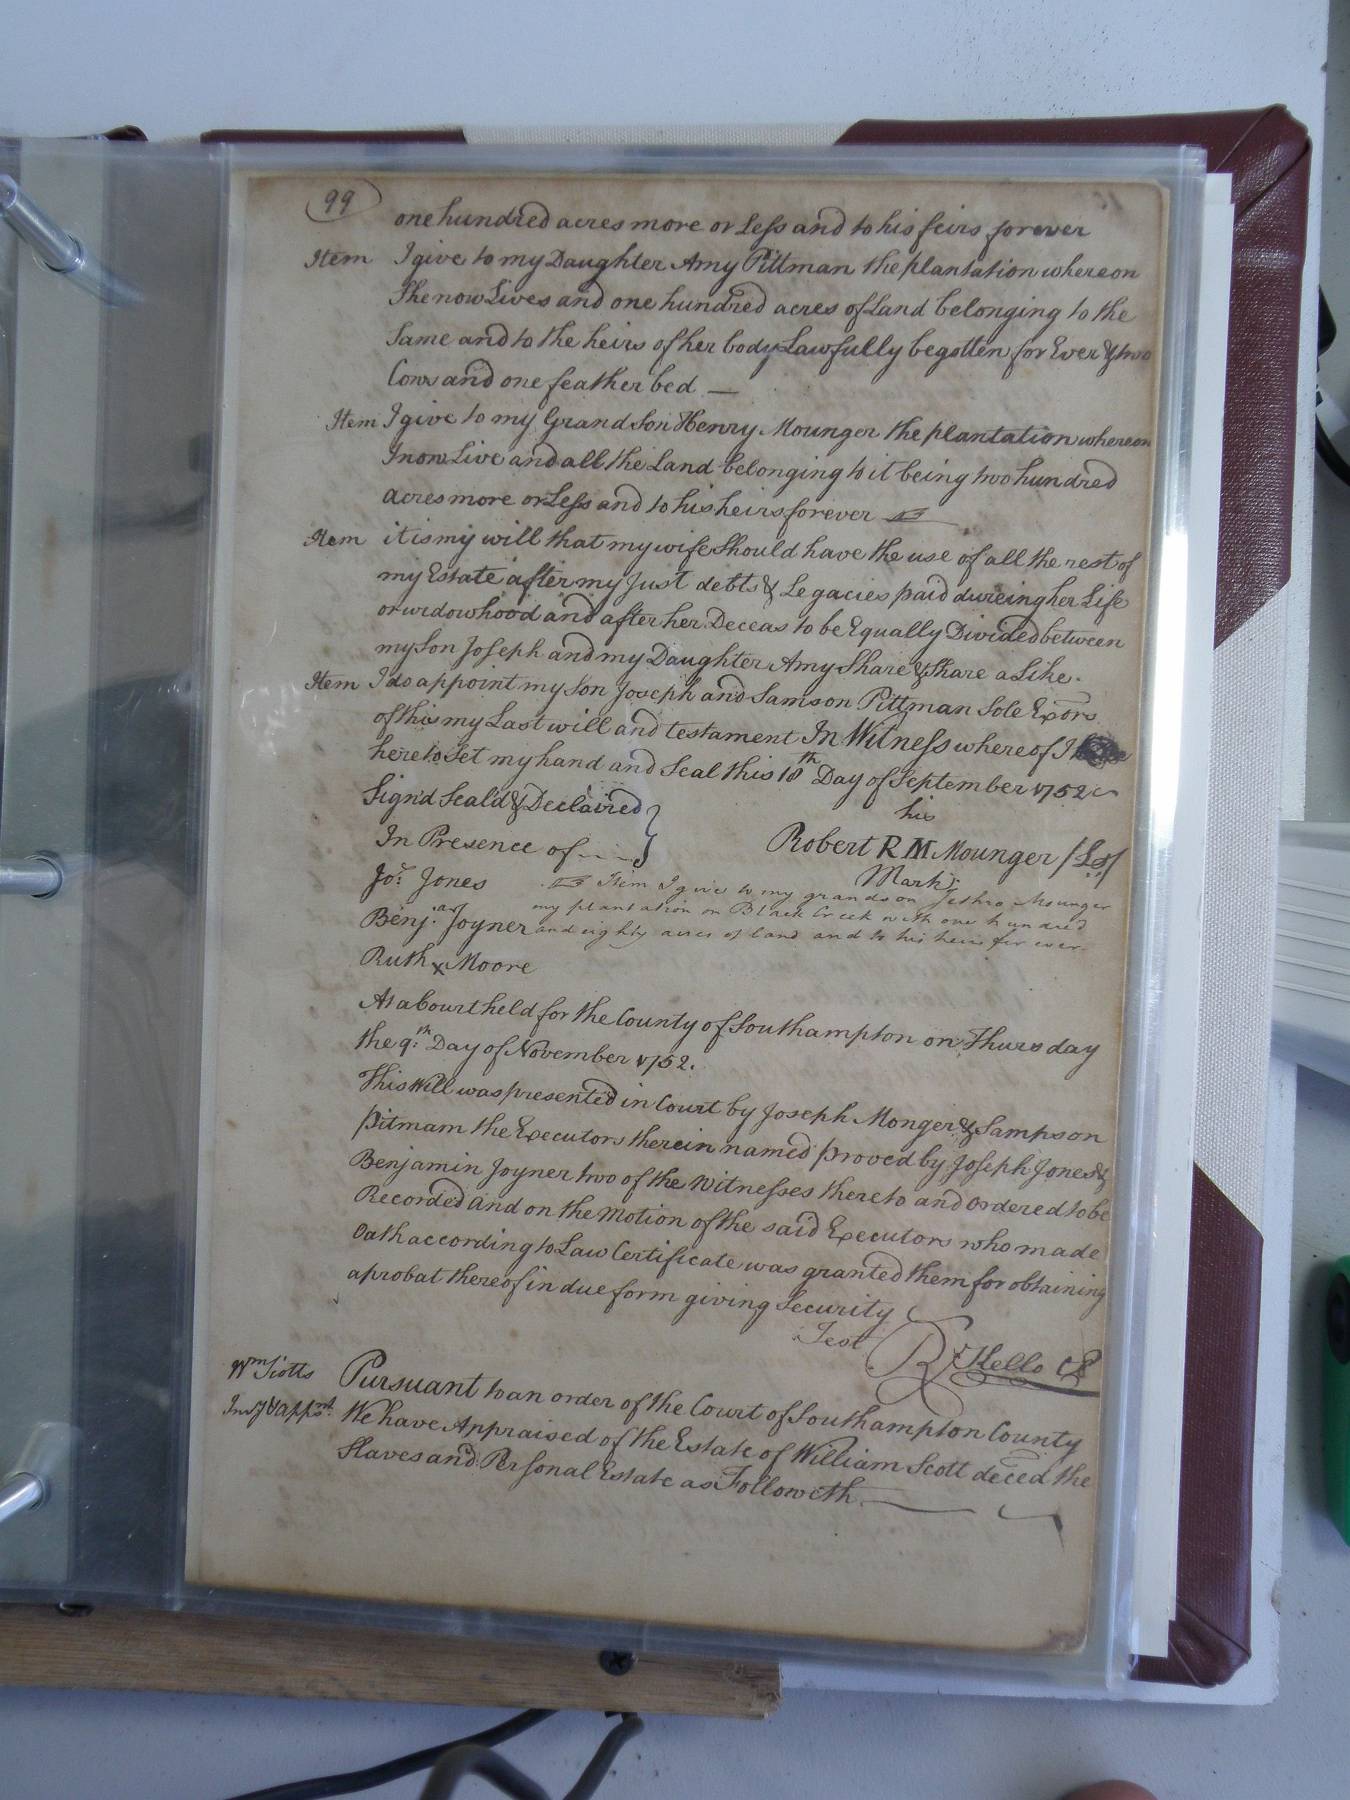 99
one hundred acres more or Less and to his heirs forever
Item I give to my Daughter Amy Pittman the plantation whereon
She now Lives and one hundred acres of Land belonging to the
Same and to the heirs of her body Lawfully begotten for Ever & two
Cows and one feather bed —
Item I give to my Grand Son Henry Mounger the plantation whereon
I now Live and all the Land belonging to it being two hundred
acres more or Less and to his heirs forever
Item it is my will that my wife Should have the use of all the rest of
my Estate after my Just debts & Legacies paid dureing her Life
or widowhood and after her Deceas to be Equally Divided between
my Son Joseph and my Daughter Amy Share & Share a Like.
Item I do appoint my Son Joseph and Samson Pittman Sole Exors
of this my Last will and testament In Witness whereof I
hereto Set my hand and Seal this 18th Day of September 1752
Sign'd Seal'd & Declaired
his
In Presence of
Robert R M Mounger (Ls)
Mark
Jos. Jones
Item I give to my grandson Jethro Mounger
my plantation on Black Creek with one hundred
Benj.a Joyner and eighty acres of land and to his heirs for ever
Ruth x Moore
At a Court held for the County of Southampton on Thursday
the 9th Day of November 1752.
This Will was presented in Court by Joseph Monger & Sampson
Pitmam the Executors therein named proved by Joseph Jones &
Benjamin Joyner two of the Witnesses thereto and ordered to be
Recorded and on the Motion of the said Executors who made
Oath according to Law Certificate was granted them for obtaining
a probat thereof in due form giving Security
Test R Kello
Wm Scotts Pursuant to an order of the Court of Southampton County
We have Appraised of the Estate of William Scott deced the
Slaves and Personal Estate as Followeth